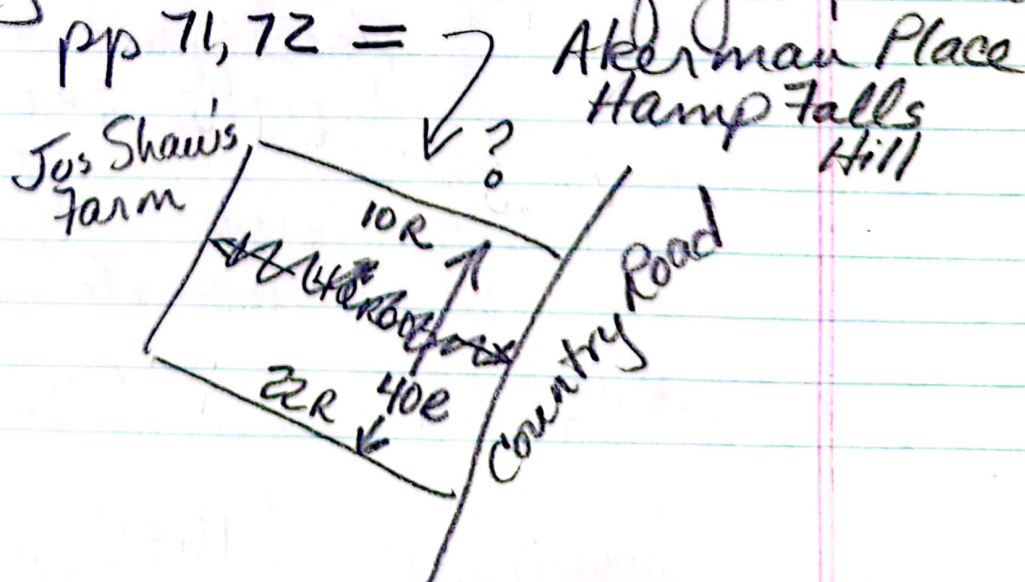 pp 71, 72 =
Akerman Place
Hamp Falls
Hill
?
Jos Shaw's
Farm
10R
22R
40R
Country Road